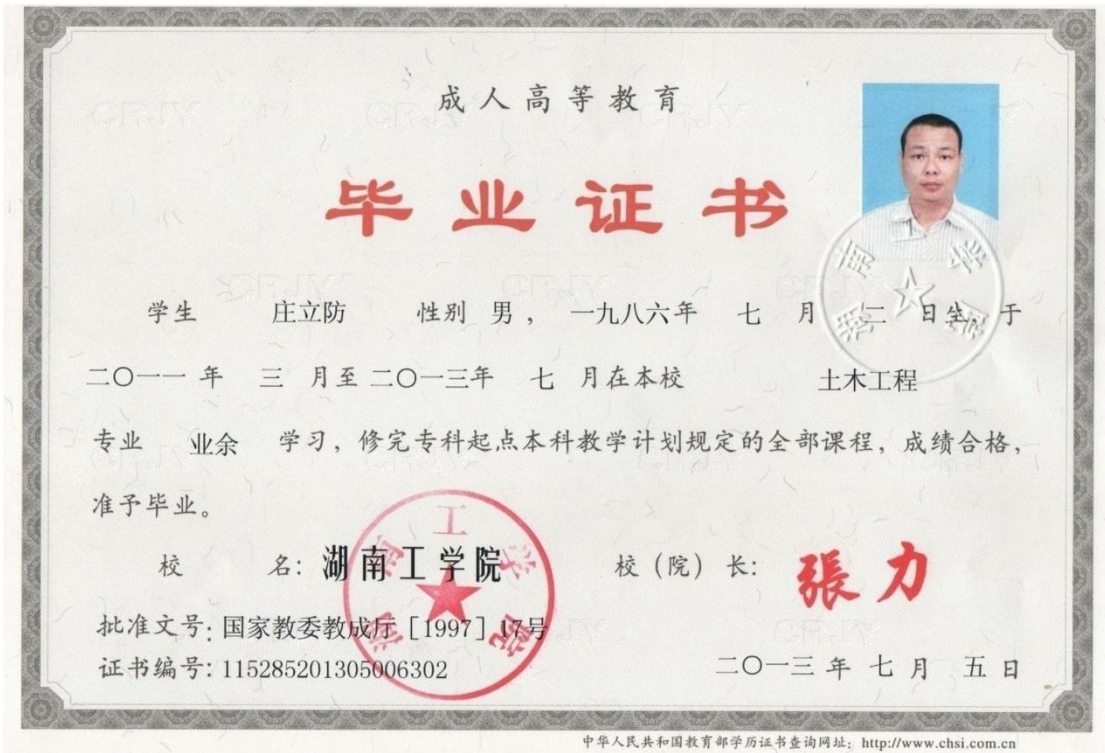 成人高等教育
毕业证书
学生 庄立防 性别 男，一九八六年 七 月 二 日生，于
二〇一一 年 三 月至 二〇一三年 七 月在本校 土木工程
专业 业余 学习，修完专科起点本科教学计划规定的全部课程，成绩合格，
准予毕业。
校 名：湖南工学院 校（院）长：張力
湖南工学院
批准文号：国家教委教成厅［1997］17号
证书编号：115285201305006302 二〇一三 年 七 月 五 日
中华人民共和国教育部学历证书查询网址：http://www.chsi.com.cn